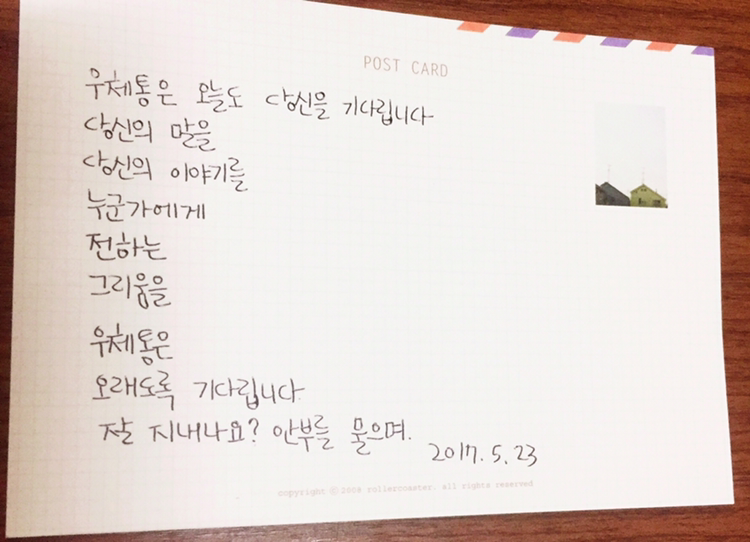 POST CARD
우체통은 오늘도 당신을 기다립니다
당신의 말을
당신의 이야기를
누군가에게
전하는
그리움을
우체통은
오래도록 기다립니다
잘 지내나요? 안부를 물으며.
2017. 5. 23
copyright ⓒ 2008 rollercoaster. all rights reserved